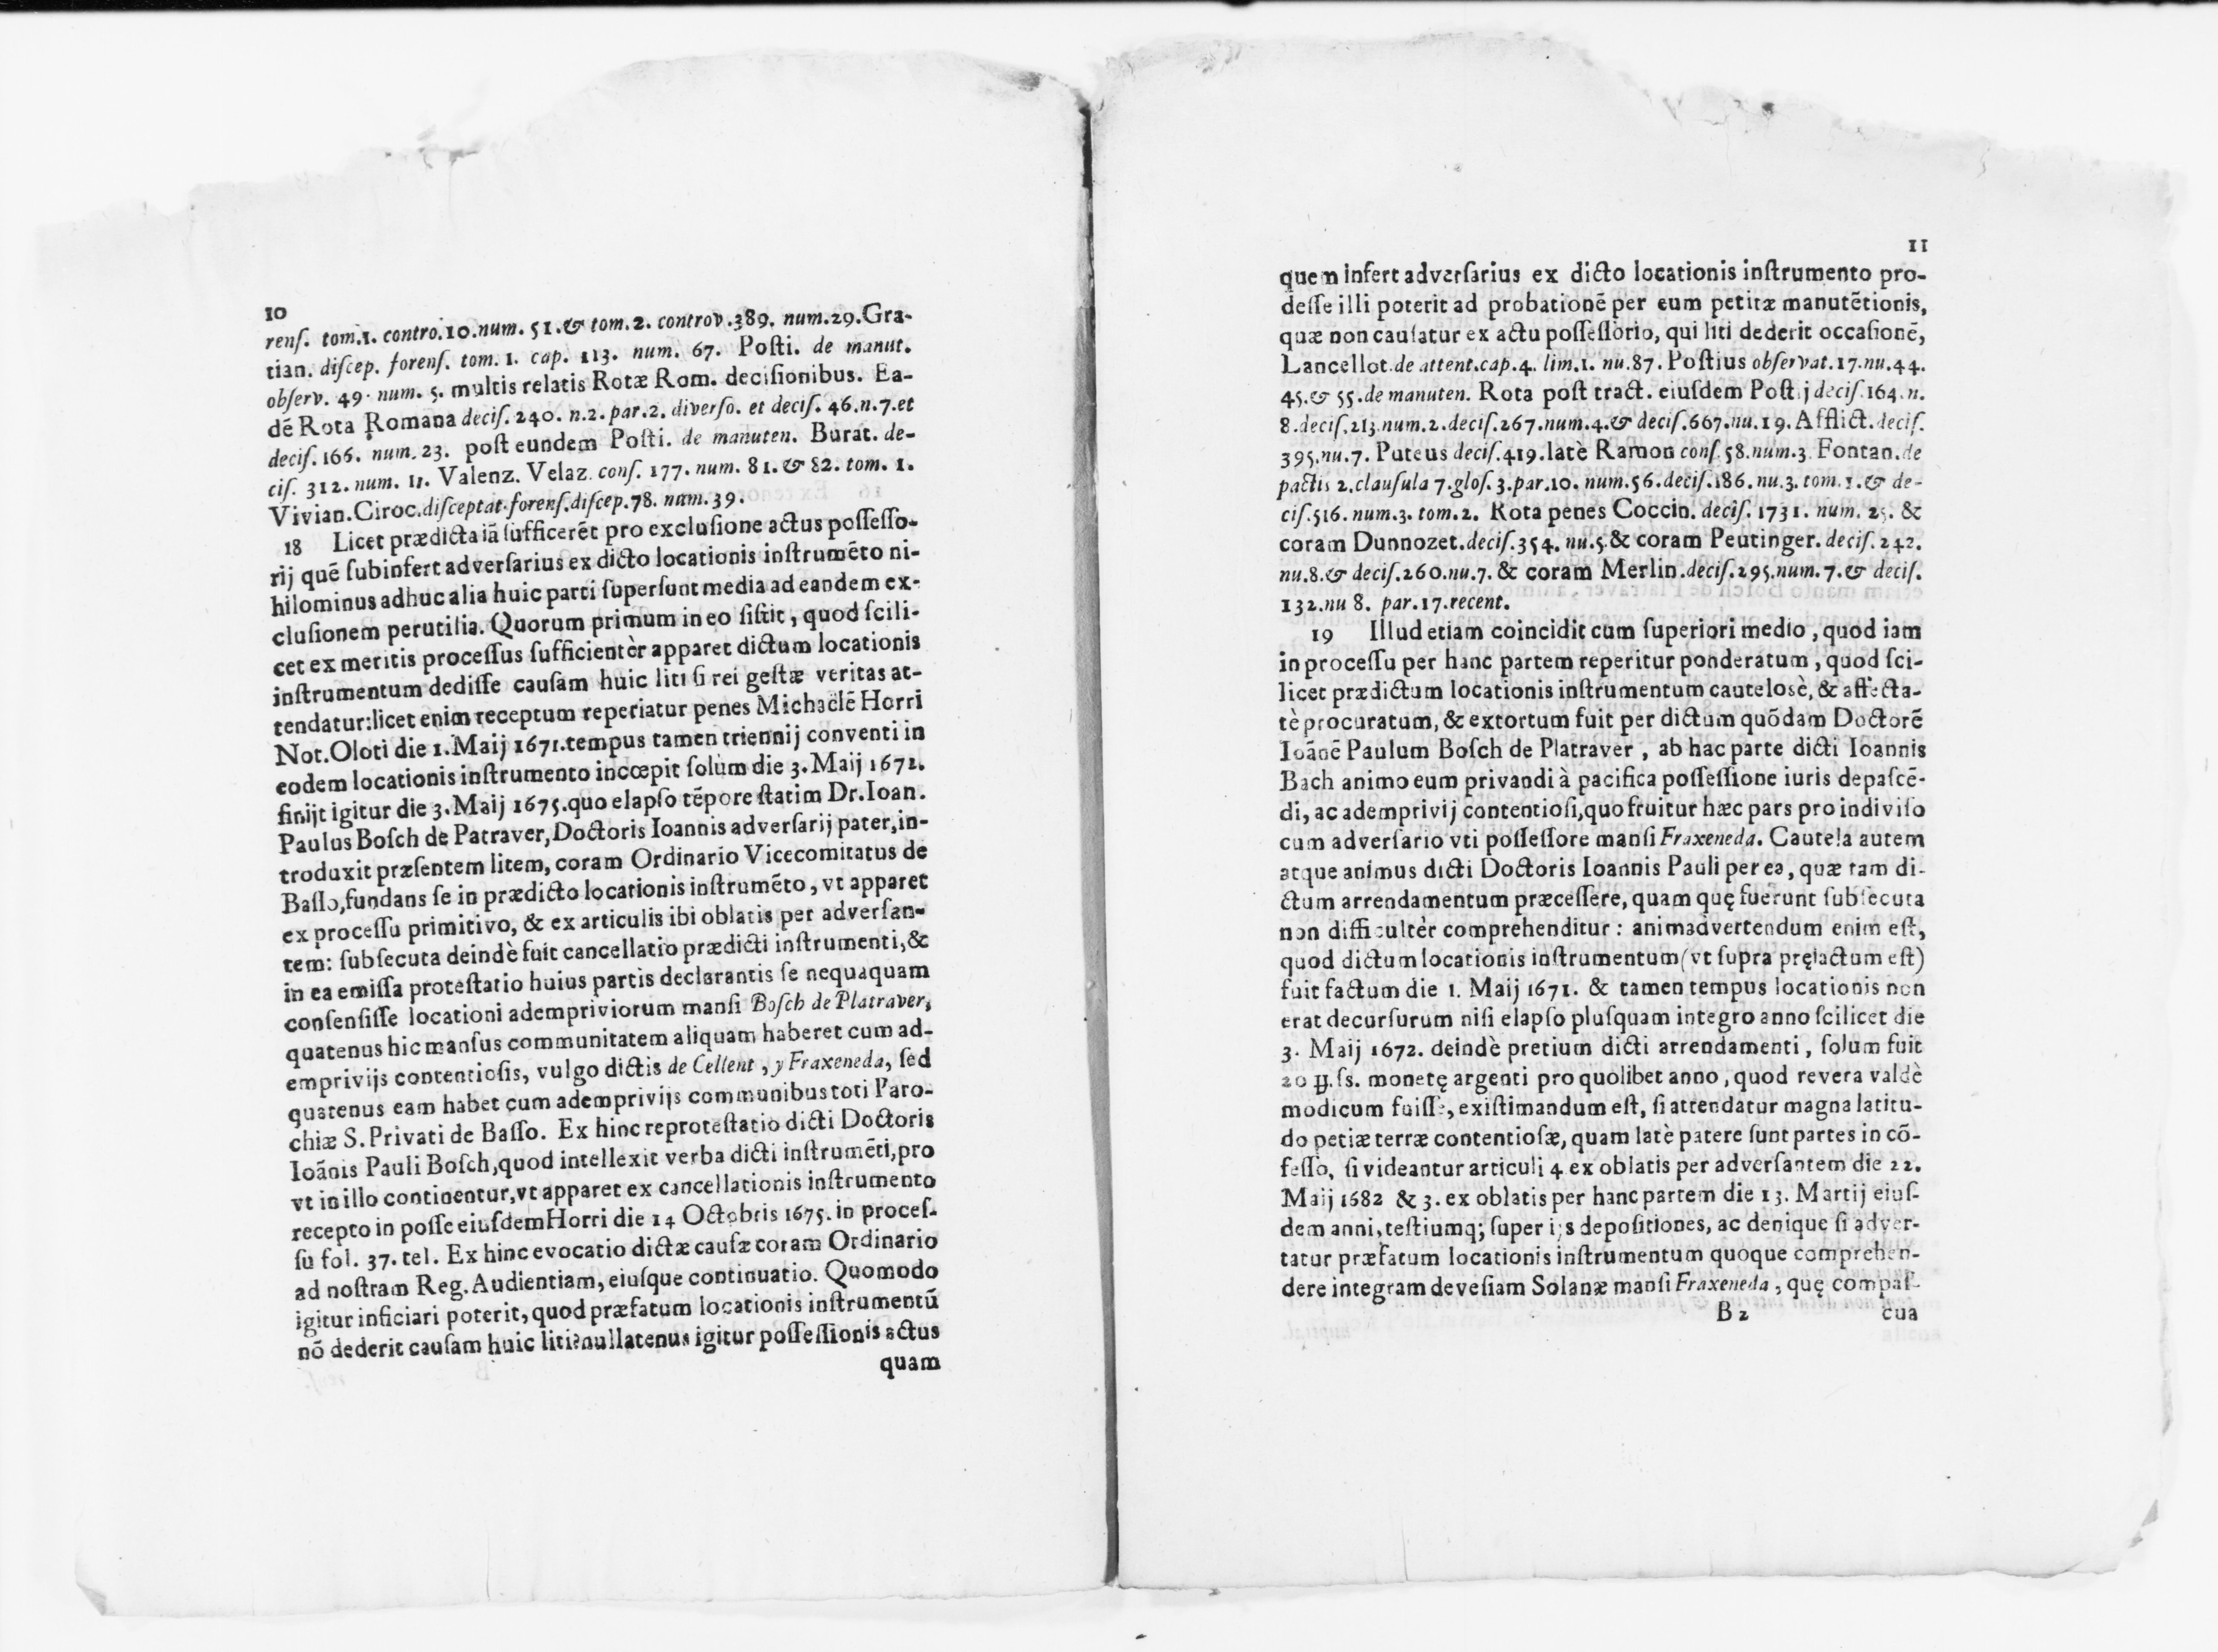 10
renſ. tom.1. contro.10.num. 51.& tom.2. controv.389. num.29.Gra-
tian. diſcep. forenſ. tom. 1. cap. 113. num. 67. Poſti. de manut.
obſerv. 49. num. 5. multis relatis Rotæ Rom. deciſionibus. Ea-
dē Rota Romana deciſ. 240. n.2. par.2. diverſo. et deciſ. 46.n.7.et
deciſ. 166. num. 23. poſt eundem Poſti. de manuten. Burat. de-
ciſ. 312. num. 11. Valenz. Velaz. conſ. 177. num. 81.& 82. tom. 1.
Vivian.Ciroc.diſceptat.forenſ.diſcep.78. num.39.
18 Licet prædicta iā ſufficerēt pro excluſione actus poſſeſſo-
rij quē ſubinfert adverſarius ex dicto locationis inſtrumēto ni-
hilominus adhuc alia huic parti ſuperſunt media ad eandem ex-
cluſionem perutilia. Quorum primum in eo ſiſtit, quod ſcili-
cet ex meritis proceſſus ſufficientèr apparet dictum locationis
inſtrumentum dediſſe cauſam huic liti ſi rei geſtæ veritas at-
tendatur:licet enim receptum reperiatur penes Michaelē Horri
Not.Oloti die 1.Maij 1671.tempus tamen triennij conventi in
eodem locationis inſtrumento incœpit ſolùm die 3. Maij 1672.
finijt igitur die 3.Maij 1675.quo elapſo tēpore ſtatim Dr.Ioan.
Paulus Boſch de Patraver,Doctoris Ioannis adverſarij pater,in-
troduxit præſentem litem, coram Ordinario Vicecomitatus de
Baſſo,fundans ſe in prædicto locationis inſtrumēto, vt apparet
ex proceſſu primitivo, & ex articulis ibi oblatis per adverſan-
tem: ſubſecuta deindè fuit cancellatio prædicti inſtrumenti,&
in ea emiſſa proteſtatio huius partis declarantis ſe nequaquam
conſenſiſſe locationi adempriviorum manſi Boſch de Platraver,
quatenus hic manſus communitatem aliquam haberet cum ad-
emprivijs contentioſis, vulgo dictis de Cellent, y Fraxeneda, ſed
quatenus eam habet cum ademprivijs communibus toti Paro-
chiæ S.Privati de Baſſo. Ex hinc reproteſtatio dicti Doctoris
Ioānis Pauli Boſch,quod intellexit verba dicti inſtrumēti,pro
vt in illo continentur,vt apparet ex cancellationis inſtrumento
recepto in poſſe eiuſdem Horri die 14 Octobris 1675. in proceſ-
ſu fol. 37. tel. Ex hinc evocatio dictæ cauſæ coram Ordinario
ad noſtram Reg.Audientiam, eiuſque continuatio. Quomodo
igitur inficiari poterit, quod præfatum locationis inſtrumentū
nō dederit cauſam huic liti?nullatenus igitur poſſeſſionis actus
quam
11
quem infert adverſarius ex dicto locationis inſtrumento pro-
deſſe illi poterit ad probationē per eum petitæ manutētionis,
quæ non cauſatur ex actu poſſeſſorio, qui liti dederit occaſionē,
Lancellot.de attent.cap.4. lim.1. nu.87. Poſtius obſervat.17.nu.44.
45.& 55.de manuten. Rota poſt tract. eiuſdem Poſtij deciſ.164.n.
8.deciſ.213.num.2.deciſ.267.num.4.& deciſ.667.nu.19.Afflict.deciſ.
395.nu.7. Puteus deciſ.419.latè Ramon conſ.58.num.3. Fontan.de
pactis 2.clauſula 7.gloſ.3.par.10. num.56.deciſ.186.nu.3.tom.1.& de-
ciſ.516. num.3. tom.2. Rota penes Coccin. deciſ. 1731. num. 25. &
coram Dunnozet.deciſ.354. nu.5.& coram Peutinger. deciſ.242.
nu.8.& deciſ.260.nu.7. & coram Merlin.deciſ.295.num.7.& deciſ.
132.nu 8. par.17.recent.
19 Illud etiam coincidit cum ſuperiori medio, quod iam
in proceſſu per hanc partem reperitur ponderatum, quod ſci-
licet prædictum locationis inſtrumentum cauteloſè, & affecta-
tè procuratum, & extortum fuit per dictum quōdam Doctorē
Ioānē Paulum Boſch de Platraver, ab hac parte dicti Ioannis
Bach animo eum privandi à pacifica poſſeſſione iuris depaſcē-
di, ac ademprivij contentioſi,quo fruitur hæc pars pro indiviſo
cum adverſario vti poſſeſſore manſi Fraxeneda. Cautela autem
atque animus dicti Doctoris Ioannis Pauli per ea, quæ tam di-
ctum arrendamentum præceſſère, quam quę fuerunt ſubſecuta
non difficultèr comprehenditur: animadvertendum enim eſt,
quod dictum locationis inſtrumentum (vt ſupra pręlactum eſt)
fuit factum die 1. Maij 1671. & tamen tempus locationis non
erat decurſurum niſi elapſo pluſquam integro anno ſcilicet die
3. Maij 1672. deindè pretium dicti arrendamenti, ſolum fuit
20 ꝶ.ſs. monetę argenti pro quolibet anno, quod revera valdè
modicum fuiſſe, exiſtimandum eſt, ſi attendatur magna latitu-
do petiæ terræ contentioſæ, quam latè patere ſunt partes in cō-
feſſo, ſi videantur articuli 4 ex oblatis per adverſantem die 22.
Maij 1682 & 3. ex oblatis per hanc partem die 13. Martij eiuſ-
dem anni, teſtiumq; ſuper ijs depoſitiones, ac denique ſi adver-
tatur præfatum locationis inſtrumentum quoque comprehen-
dere integram deveſiam Solanæ manſi Fraxeneda, quę compaſ-
B 2 cua